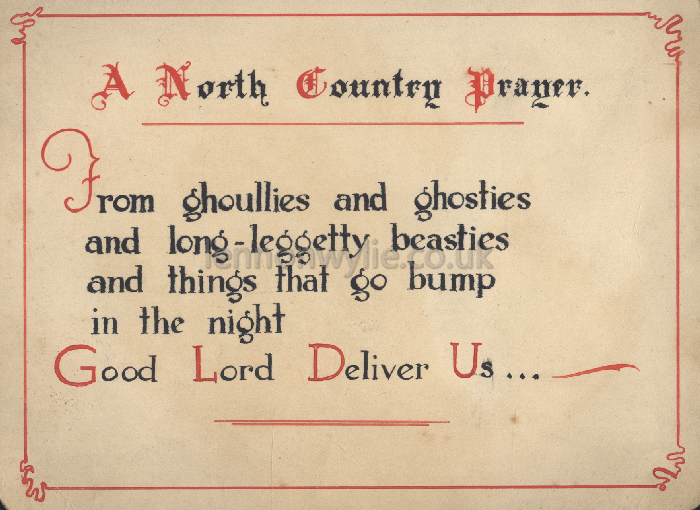 A North Country Prayer.
From ghoullies and ghosties
and long-leggetty beasties
and things that go bump
in the night
Good Lord Deliver Us...
lennonwylie.co.uk